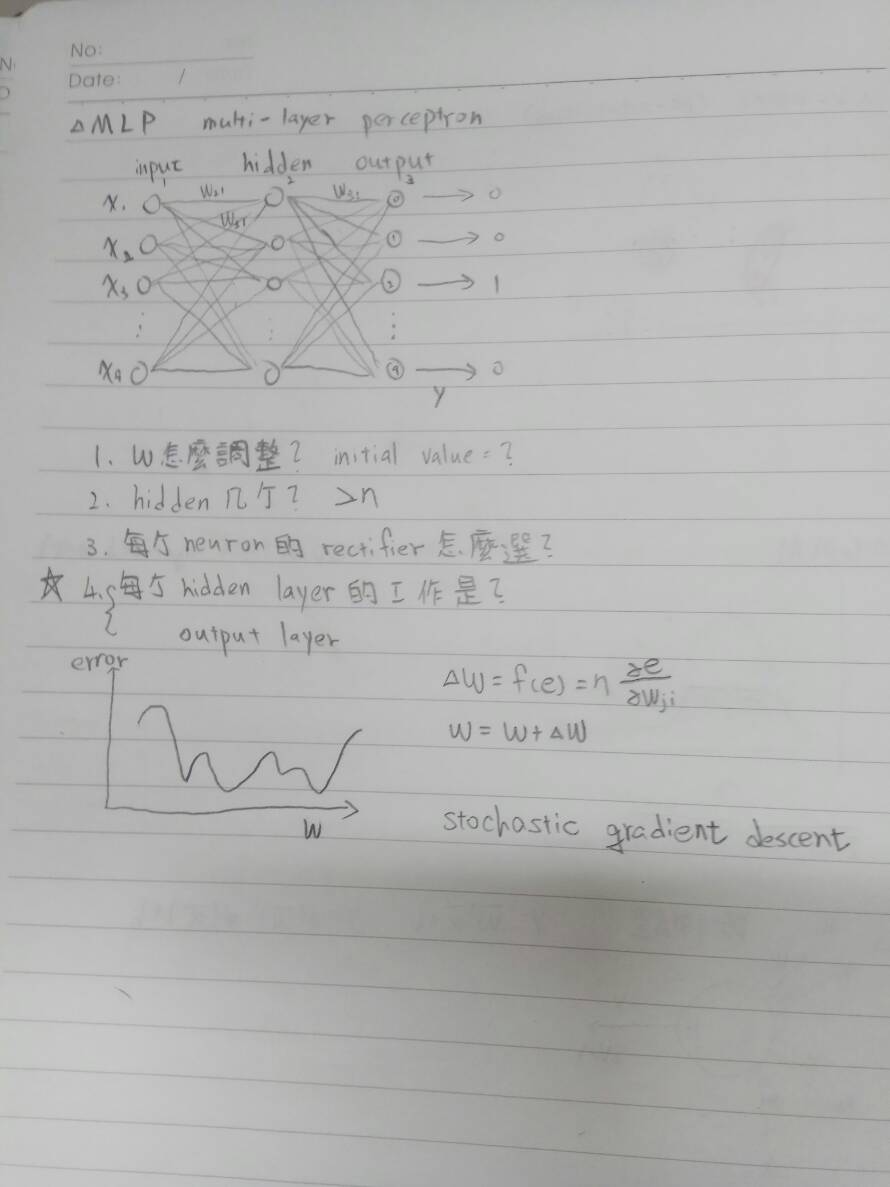 No:
Date: /
△MLP multi-layer perceptron
input hidden output
1 2 3
X₁ W₂₁ W₃₂ 0 → 0
X₂ 1 → 0
X₃ 2 → 1
⋮ ⋮ ⋮
9 → 0
Y
1. W怎麼調整? initial value=?
2. hidden 几个? >n
3. 每个 neuron的 rectifier 怎麼選?
☆ 4. { 每个 hidden layer 的工作是?
output layer
error
ΔW = f(e) = η ∂e/∂Wji
W = W + ΔW
W
stochastic gradient descent